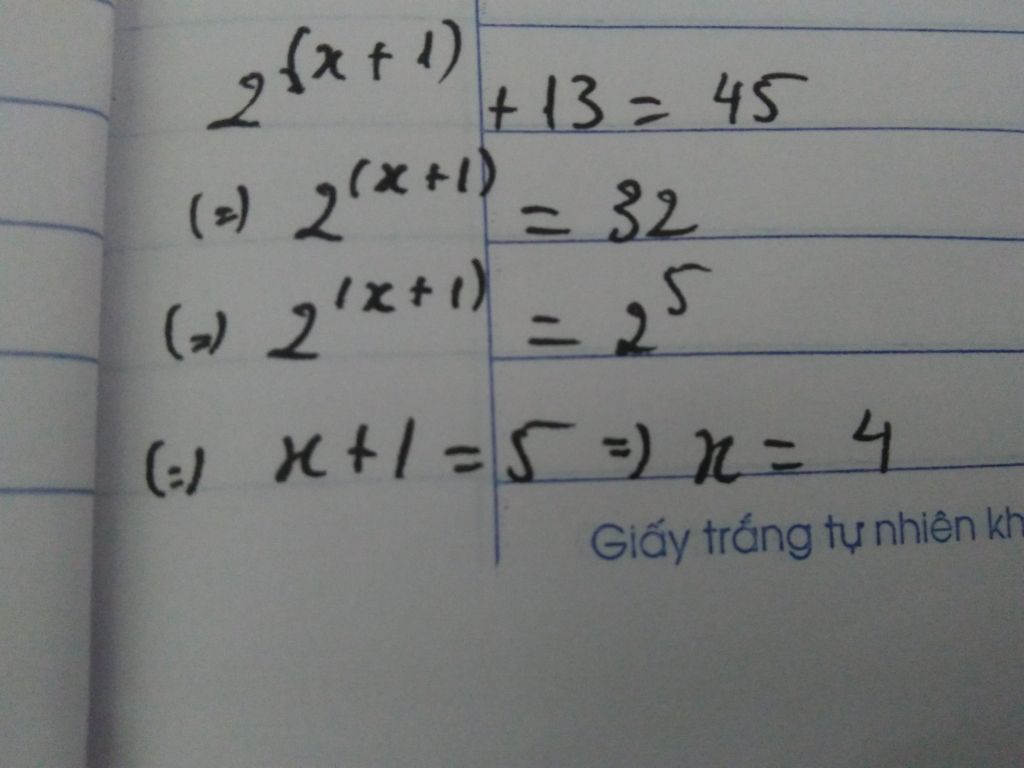 2^(x+1) + 13 = 45
(=) 2^(x+1) = 32
(=) 2^(x+1) = 2^5
(=) x+1 = 5 => x = 4
Giấy trắng tự nhiên kh